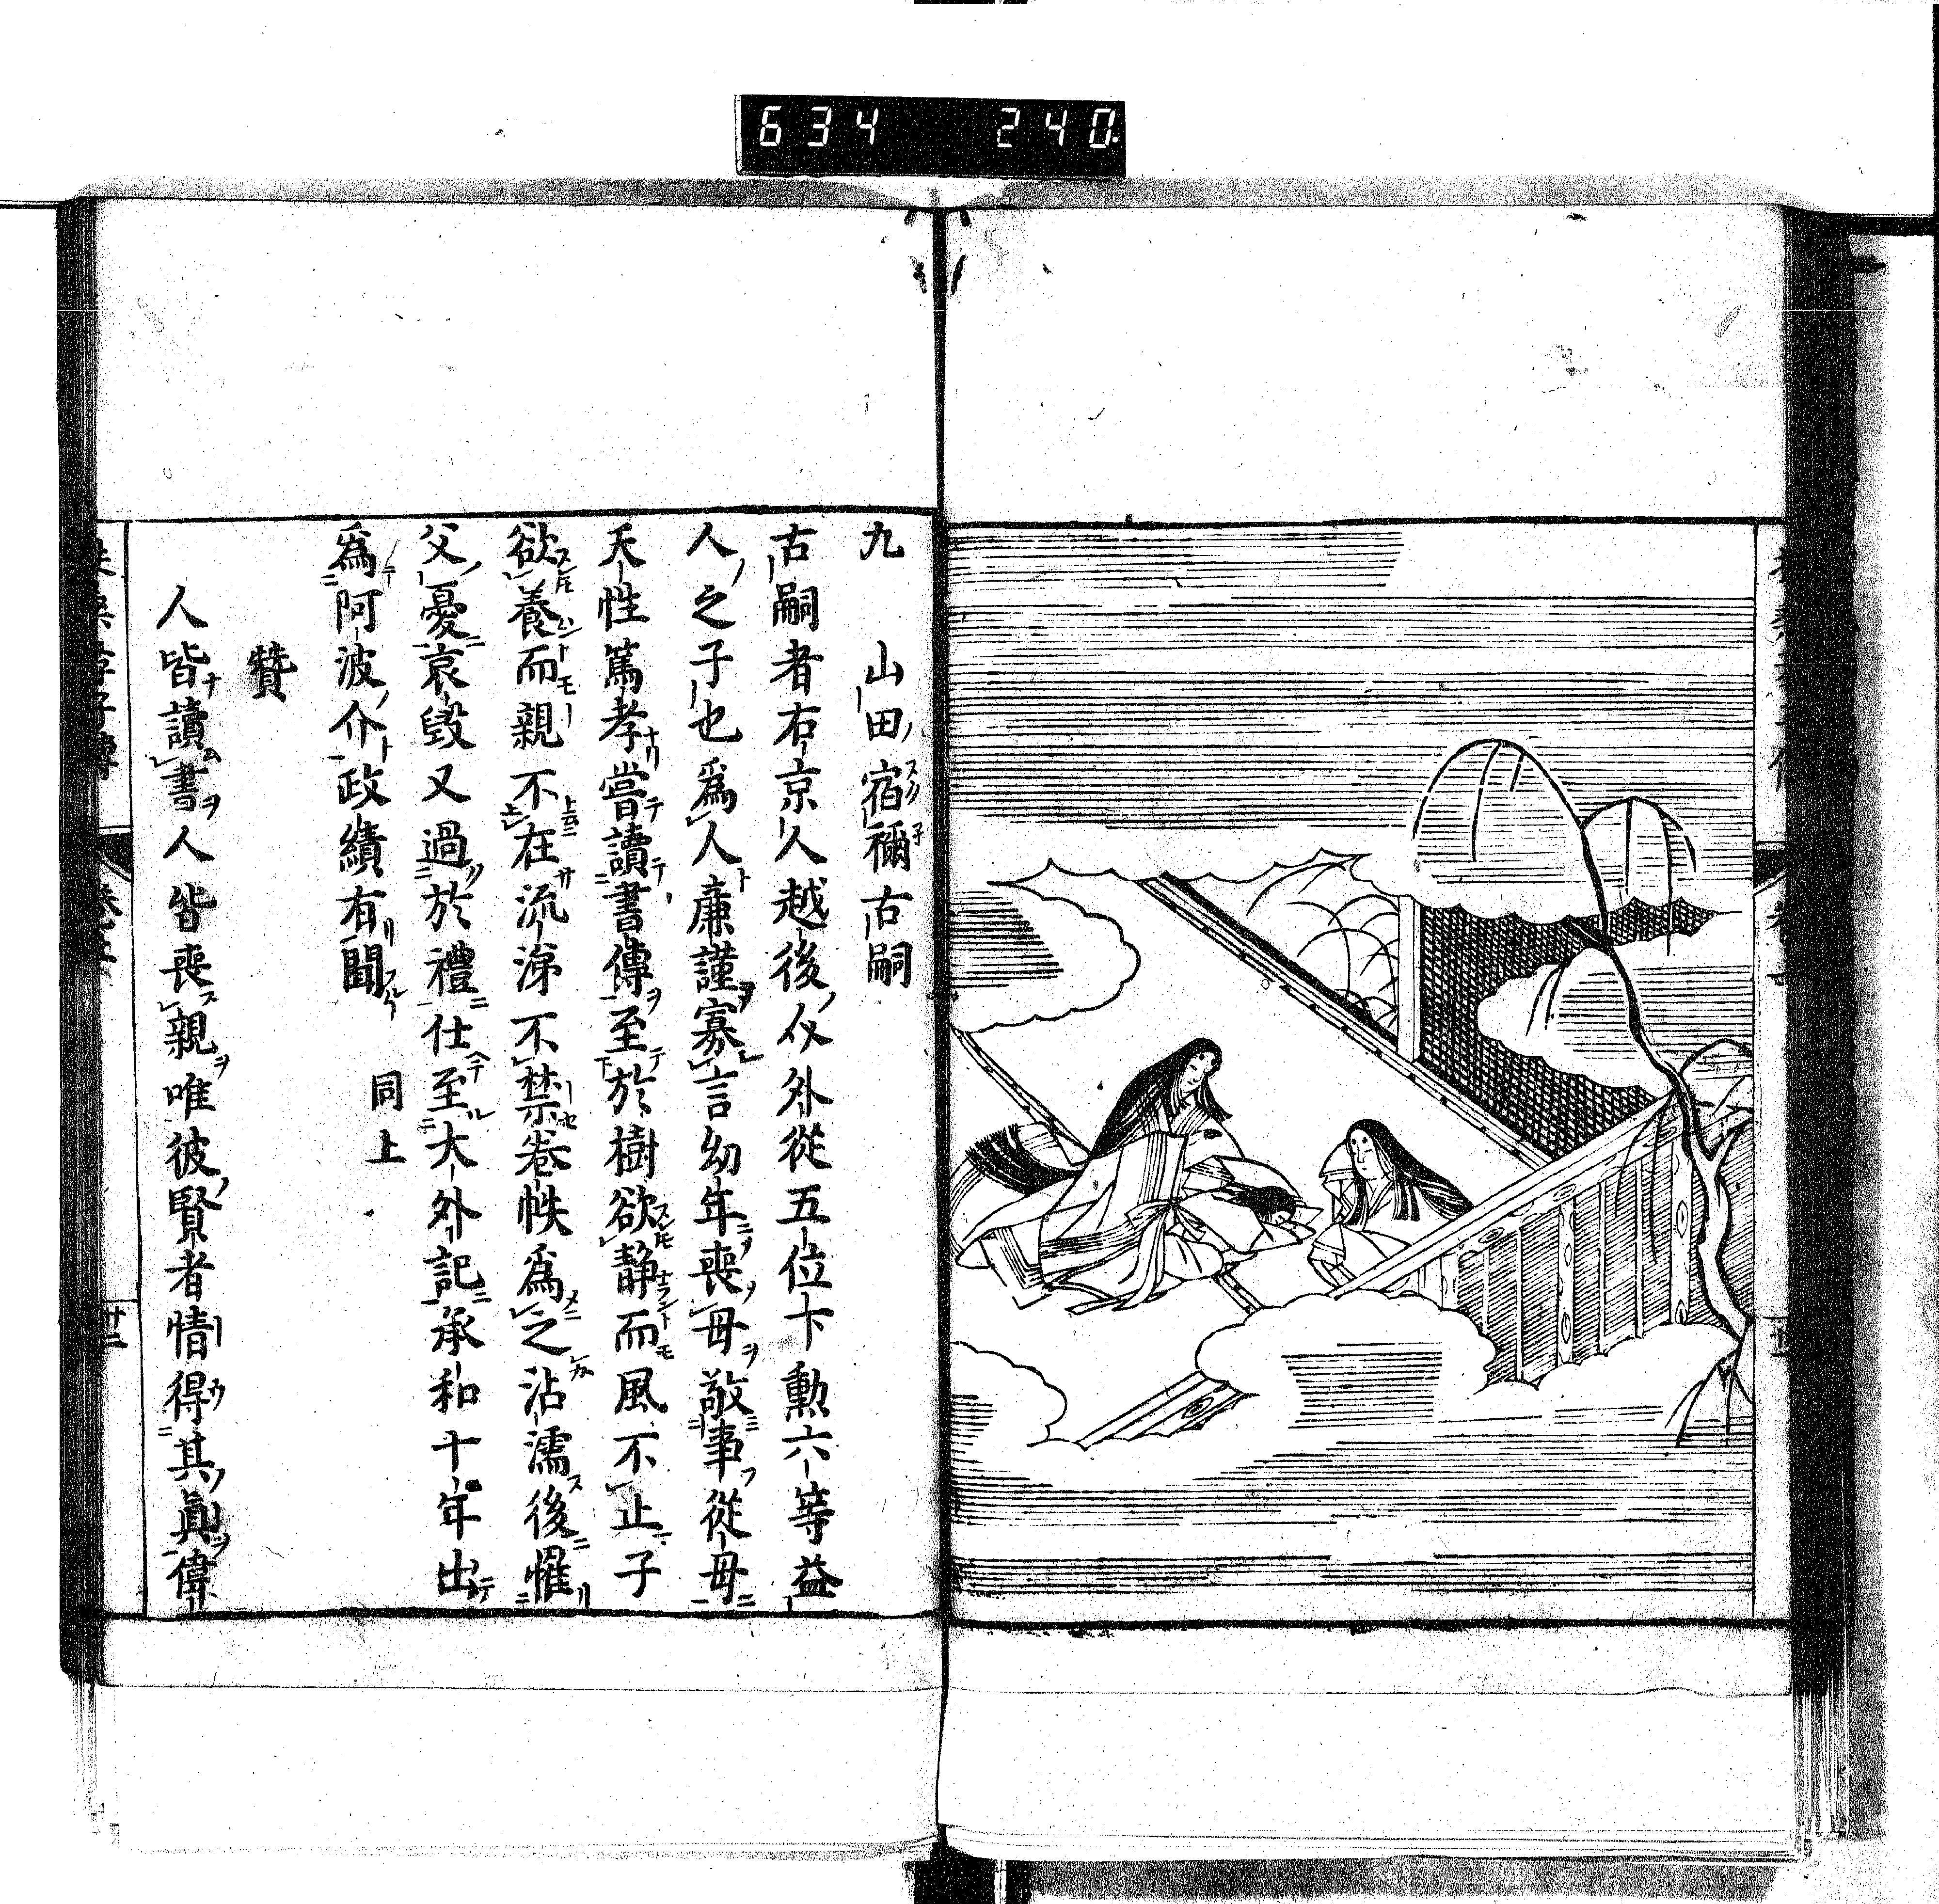 634 240
九 山田宿禰古嗣
古嗣者右京人越後介外從五位下勲六等益
人之子也爲人廉謹寡言幼年喪母敬事從母
天性篤孝嘗讀書傳至於樹欲静而風不止子
欲養而親不在流涕不禁卷帙爲之沾濡後罹
父憂哀毀又過於禮仕至大外記承和十年出
爲阿波介政績有聞 同上
贊
人皆讀書人皆喪親唯彼賢者情得其真偉